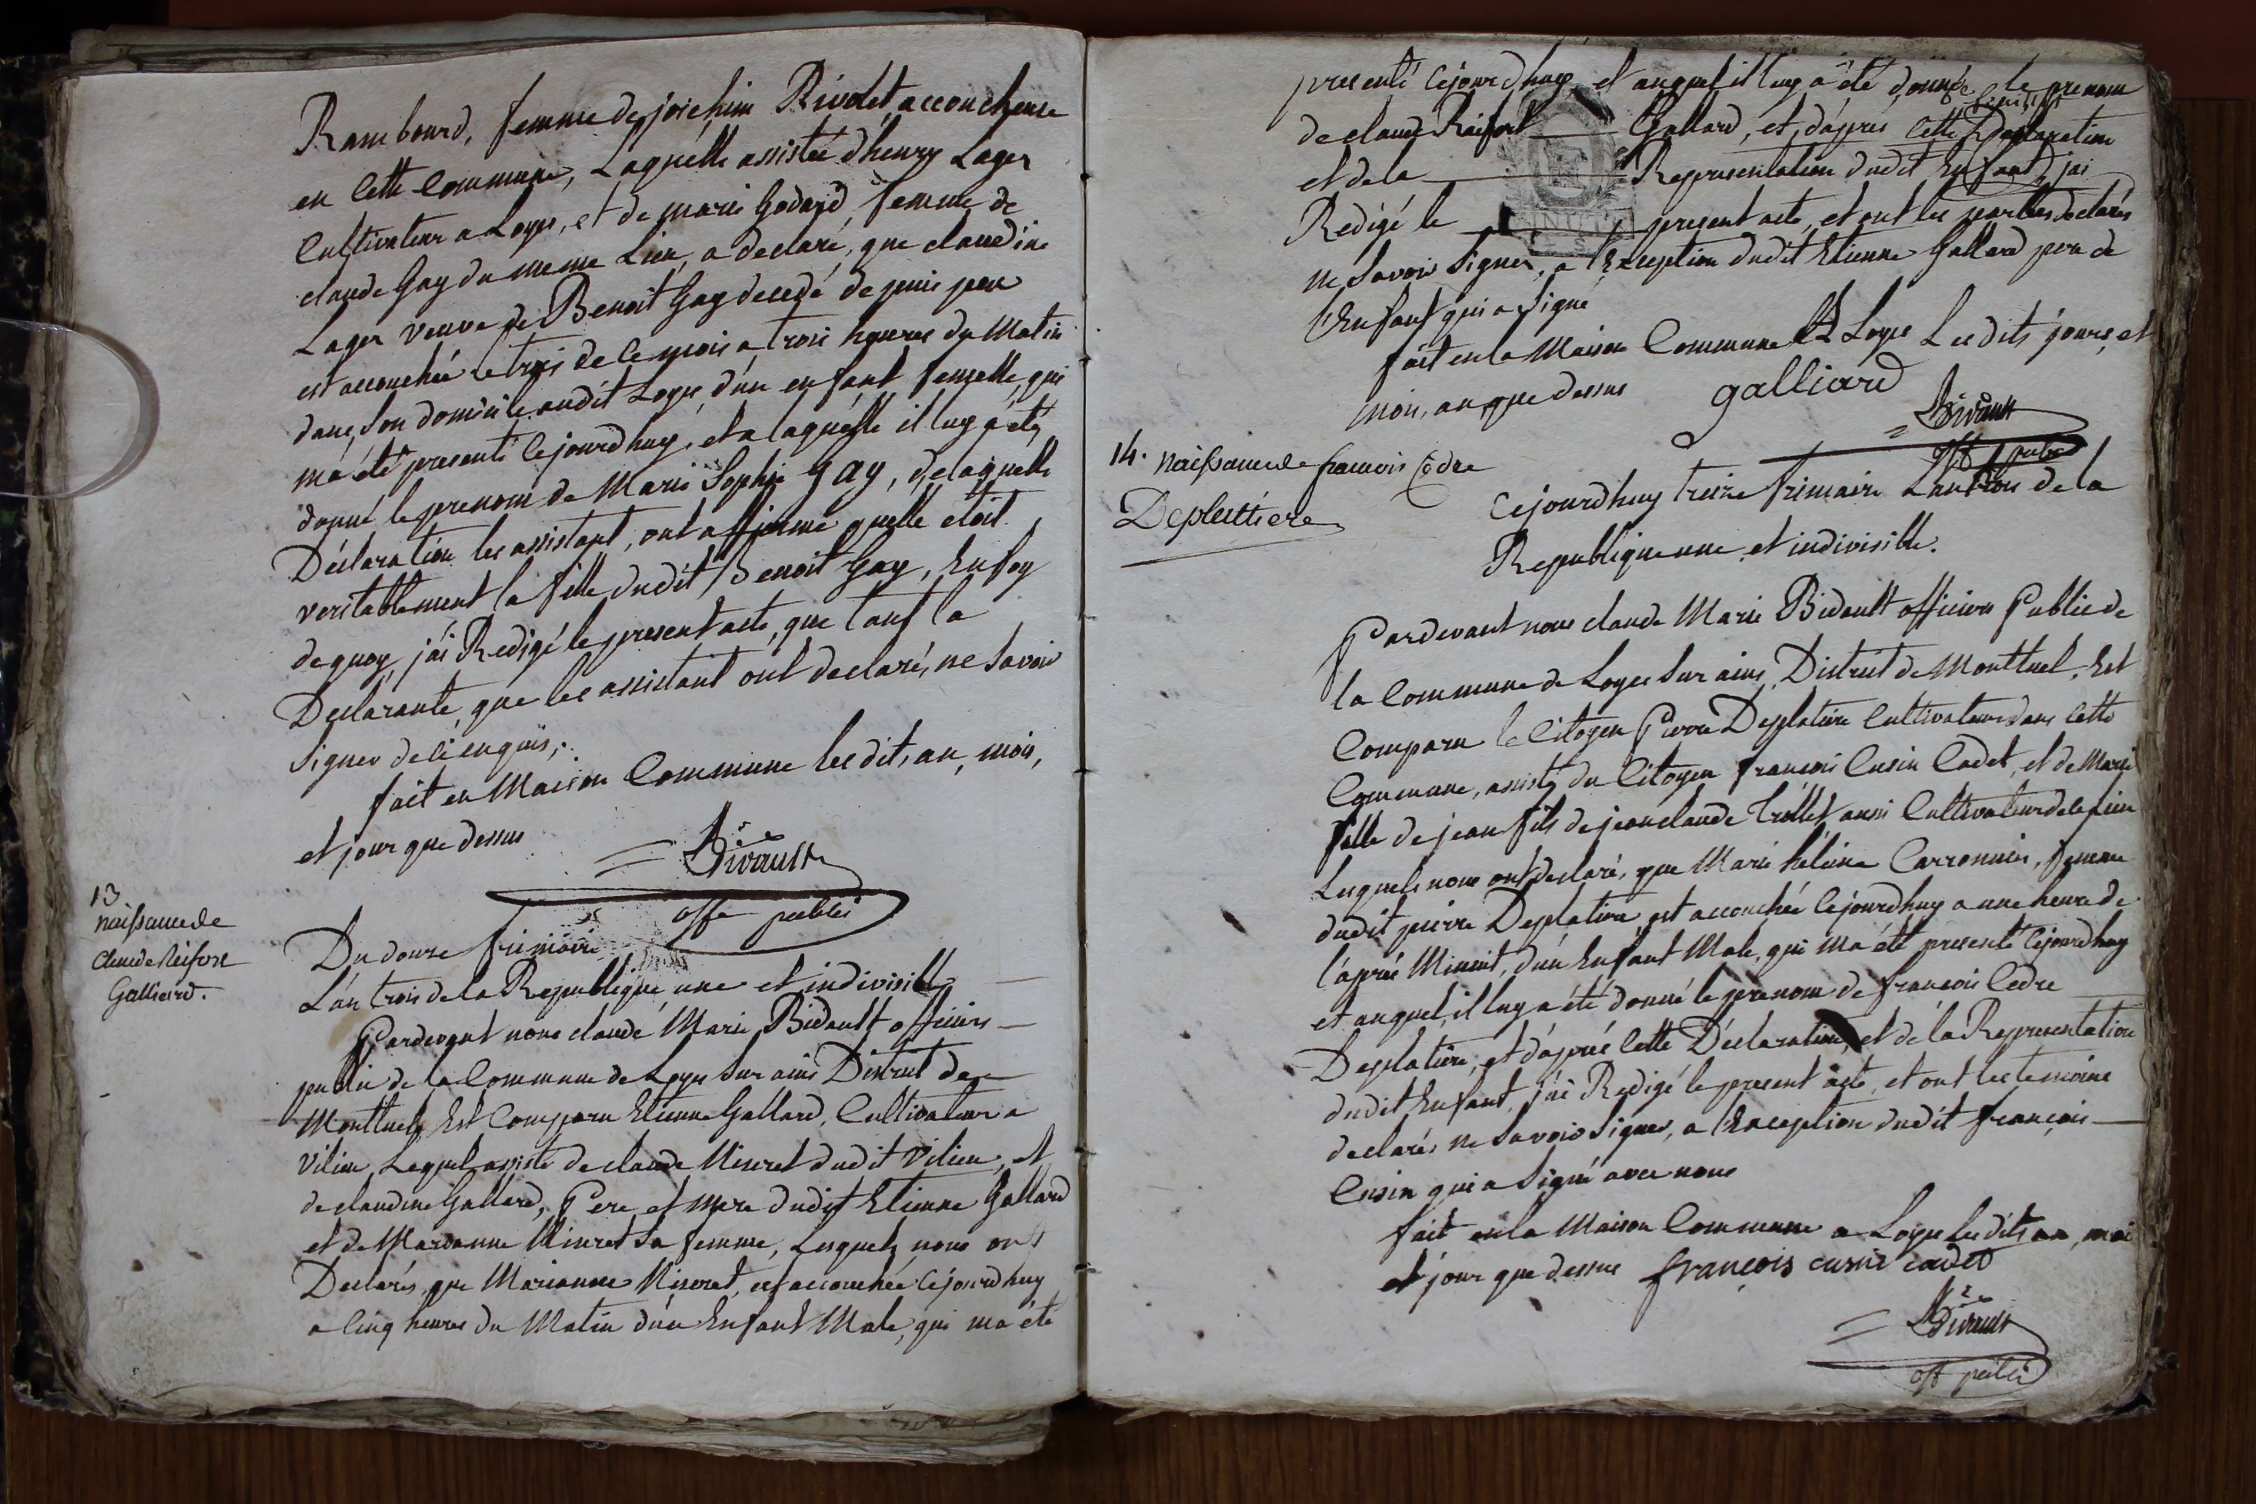 Rambourd, femme de joichim Rivolet, accoucheuse
en Cette Commune, Laquelle assistée d'henry Lager
Cultivateur a Loyes, et de marie Godard femme de
claude Gay du meme Lieu, a declaré, que claudine
Lager veuve de Benoit Gay decedé depuis peu
est accouchée le trois de ce mois a trois heures du Matin
dans Son domicile audit Loyes, d'un enfant femelle, qui
m'a été presenté Cejourdhuy, et a laquelle il luy a été
donné le prenom de Marie Sophie Gay, de laquelle
Déclaration les assistant, ont affirmé quelle etoit
veritablement la fille dudit Benoit Gay, En foy
de quoy, j'ai Redigé le present acte, que tant la
Declarante, que les assistant ont declarés, ne Savoir
Signer de ce enquis,
fait en Maison Commune les dits, an, mois,
et jour que dessus
Bidault
offr public
13
naissance de
claude Reifort
Galliard.
Du douze frimaire
L'an trois de la Republique une et indivisible
Pardevant nous claude Marie Bidault officier
public de la Commune de Loyes Sur ains District de
Montluel, Est Comparu Etienne Gallard, Cultivateur a
Vilieu, Lequel assisté de claude Mieret dudit Vilieu, et
de claudine Gallard, Pere et mere dudit Etienne Gallard
et de Marianne Mieret Sa femme, Lesquels nous ont
Declarés, que Marianne Mieret, est accouchée Cejourdhuy
a Cinq heures du Matin d'un Enfant Male, qui m'a été
presenté Cejourdhuy, et auquel il luy a été donné le prenom
de claude Raifort Gallard, et d'apres Cette Declaration
et de la Representation dudit Enfant, jai
Redigé le present acte, et ont les parties declarés
ne Savoir Signer, a l'Exception dudit Etienne Gallard pere de
l'Enfant qui a Signé
fait en la Maison Commune A Loyes Les dits jours, et
mois, an que dessus galliard
Bidault
off public
14. naissance de francois Cedre
Deplattiere
Cejourdhuy treize frimaire L'an trois de la
Republique une et indivisible.
Pardevant nous claude Marie Bidault officier Public de
la Commune de Loyes Sur ains, District de Montluel, Est
Comparu le Citoyen Pierre Deplatiere Cultivateur dans Cette
Commune, assisté du Citoyen françois Cusin Cadet, et de Marie
fille de jean fils de jeanclaude Trollet aussi Cultivateur de ce Lieu
Lesquels nous ont declaré, que Marie heleine Carronnier, femme
dudit pierre Deplatiere, est accouchée Cejourdhuy a une heure de
l'après Minuit, d'un Enfant Male, qui m'a été presenté Cejourdhuy
et auquel, il luy a été donné le prenom de francois Cedre
Deplatiere, et d'après Cette Déclaration, et de la Representation
dudit Enfant, j'ai Redigé le present acte, et ont les temoins
declarés ne Savoir Signer, a l'Exception dudit françois
Cusin qui a Signé avec nous
fait en la Maison Commune a Loyes les dits an, mois
et jour que dessus françois cusin cadet
Bidault
off public